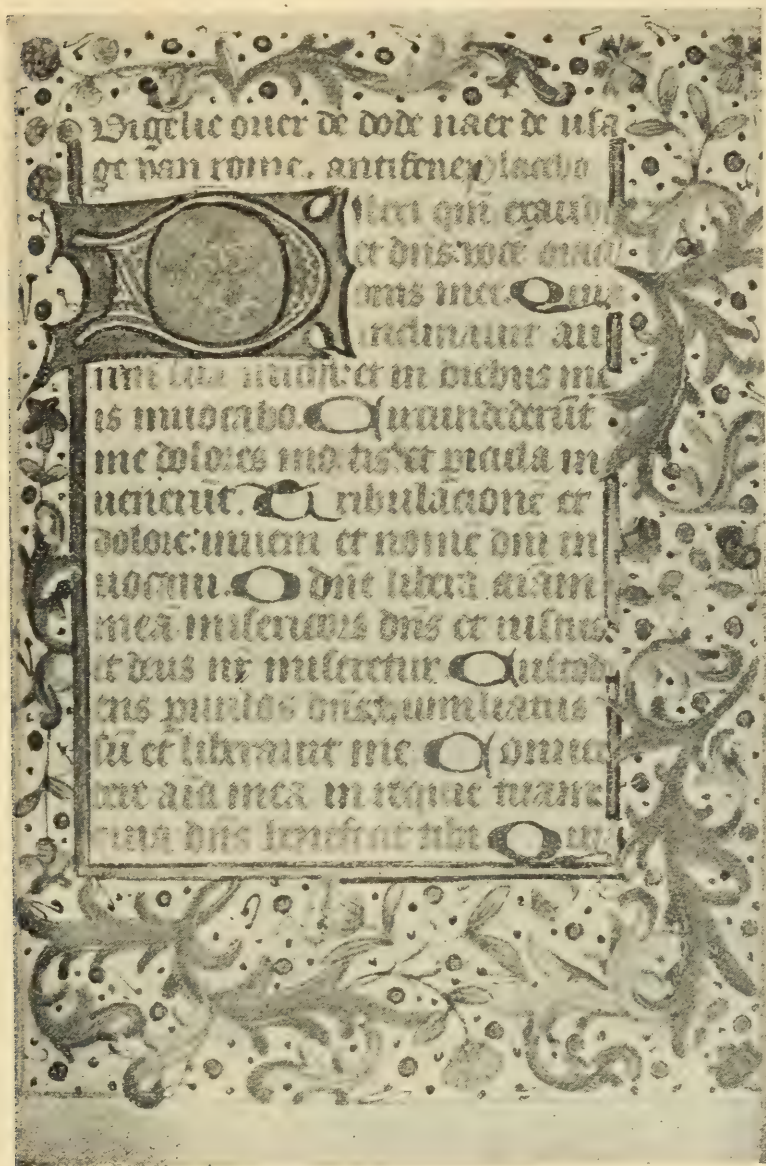 Vigelie ouer de dode naer de usa
ge van rome. antifene placebo
Dilexi qm̄ exaudi
et dn̄s: vocē
onis mee. Quia
inclinauit au
rem suā michi: et in diebus me
is inuocabo. Circundederūt
me dolores mortis: et picula in
uenerūt. Tribulacionē et
dolorē: inueni et nomē dn̄i in
uocaui. O dn̄e libera aīam
meā misericors dn̄s et iustus
et deus nr̄ miseretur Custodi
ens puulos dn̄s: humiliatus
sū et liberauit me Conuer
tere aīa mea in requiē tuam
quia dn̄s benefecit tibi Quia